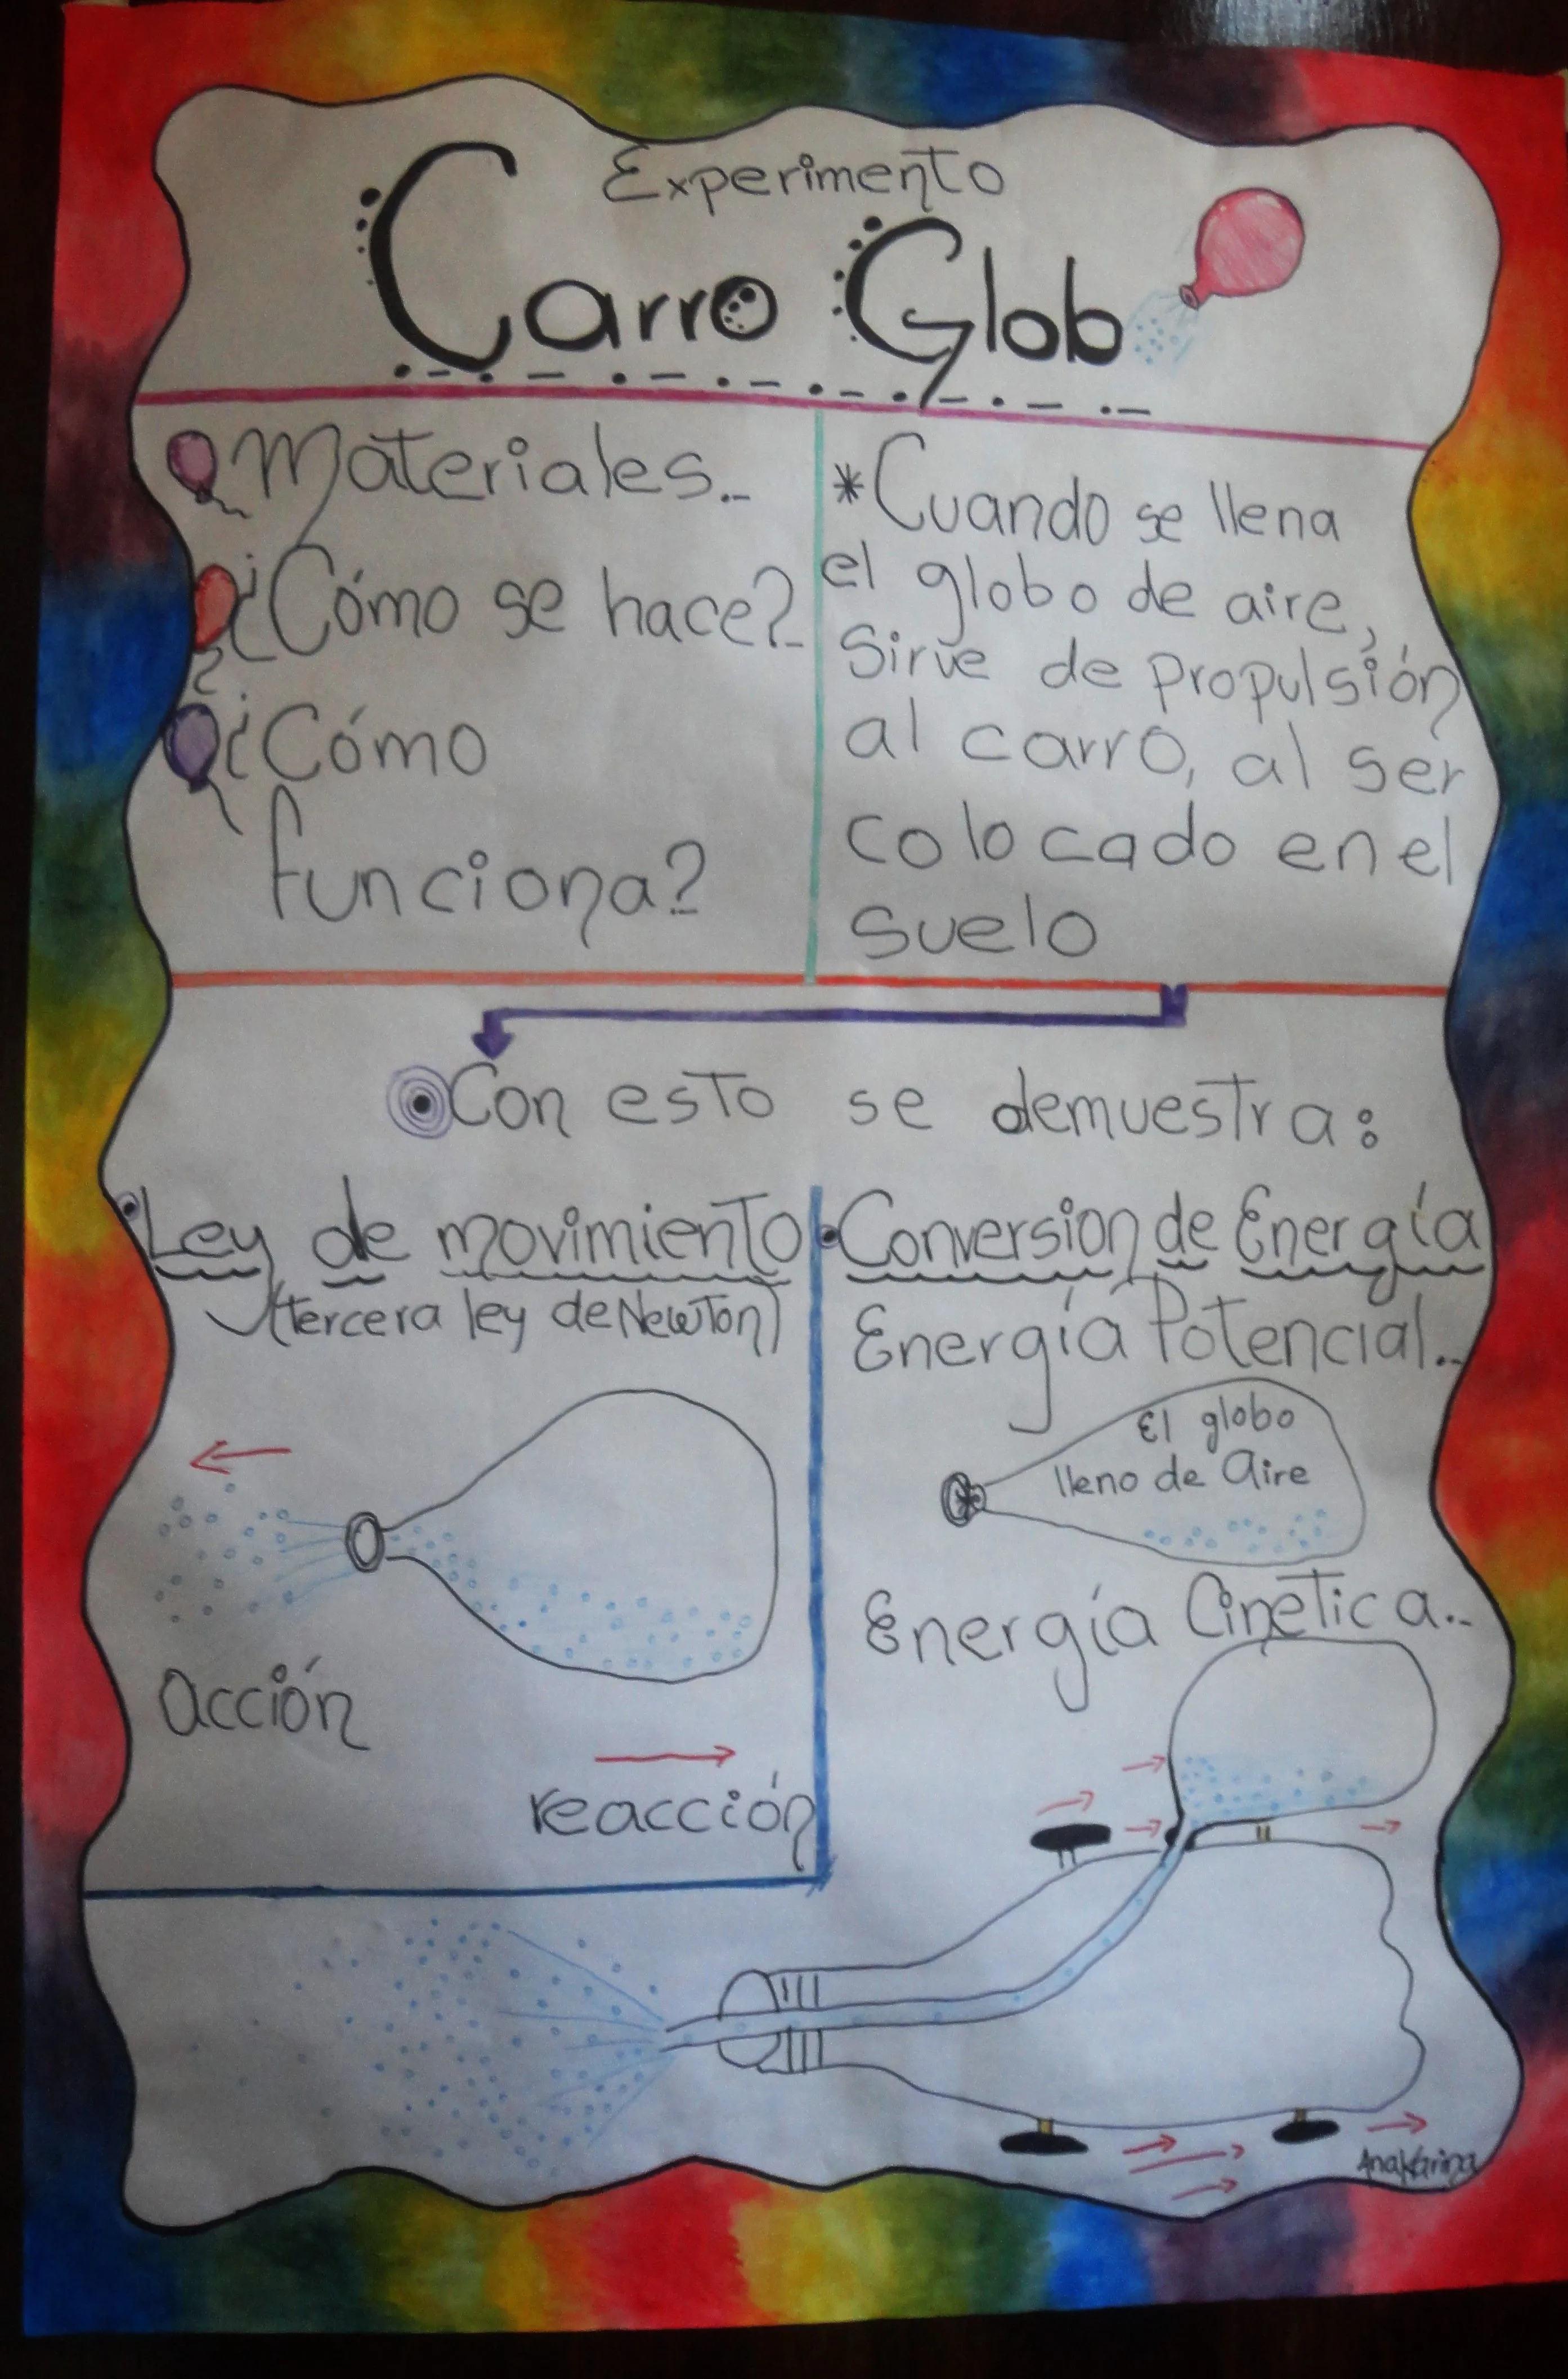 Experimento
Carro Glob
Materiales..
¿Cómo se hace?
¿Cómo
funciona?
*Cuando se llena
el globo de aire,
sirve de propulsión
al carro, al ser
colocado en el
suelo
Con esto se demuestra:
Ley de movimiento
(tercera ley de Newton)
acción
reacción
Conversion de Energía
Energía Potencial..
El globo
lleno de Aire
Energía Cinética..
AnaKarina